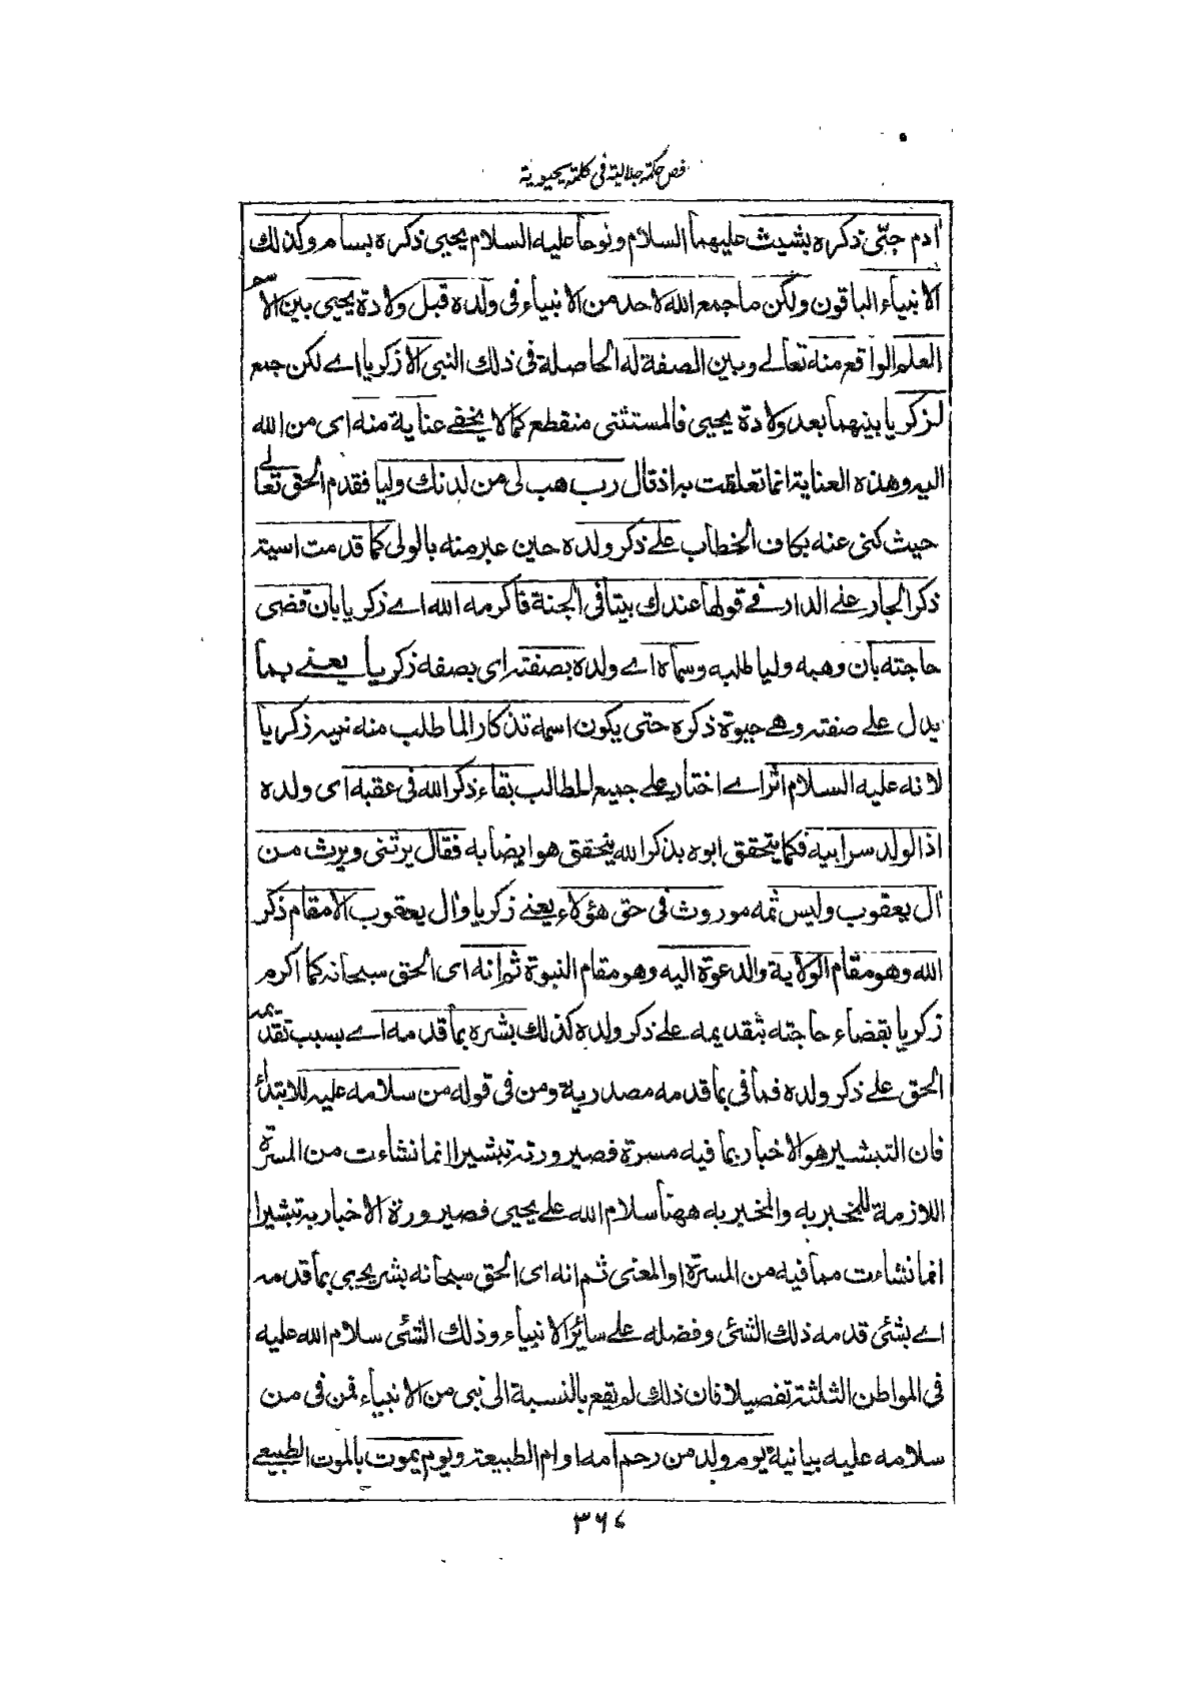 فص حكمة جلالية في كلمة يحيوية
آدم حيى ذكره بشيث عليهما السلام ونوحا عليه السلام يحيى ذكره بسام وكذلك
الانبياء الباقون ولكن ما جمع الله لاحد من الانبياء فى ولده قبل ولادة يحيى بين الاسم
العلم الواقع منه تعالے وبين الصفة له الحاصلة فى ذلك النبى الا زكريا اے لكن جمع
لزكريا بينهما بعد ولادة يحيى فالمستثنى منقطع كما لا يخفے عناية منه اى من الله
اليه وهذه العناية انما تعلقت به اذ قال رب هب لى من لدنك وليا فقدم الحق تعالے
حيث كنى عنه بكاف الخطاب علے ذكر ولده حين عبر منه بالولى كما قدمت اسية
ذكر الجار علے الدار فے قولها عندك بيتا فى الجنة فاكرمه الله اے زكريا بان قضى
حاجته بان وهبه وليا طلبه وسماه اے ولده بصفته اى بصفه زكريا يعنے بما
يدل علے صفته وهے حيوة ذكره حتى يكون اسمه تذكارا لما طلب منه نبيه زكريا
لانه عليه السلام اثر اے اختار علے جميع المطالب بقاء ذكر الله فى عقبه اى ولده
اذ الولد سر ابيه فكما يتحقق ابوه بذكر الله يتحقق هو ايضا به فقال يرثنى ويرث من
ال يعقوب وليس ثمه موروث فى حق هؤلاء يعنے زكريا وال يعقوب الا مقام ذكر
الله وهو مقام الولاية والدعوة اليه وهو مقام النبوة ثم انه اى الحق سبحانه كما اكرم
زكريا بقضاء حاجته بتقديمه علے ذكر ولده كذلك بشره بما قدمه اے بسبب تقديمه
الحق علے ذكر ولده فما فى بما قدمه مصدرية ومن فى قوله من سلامه عليه للابتداء
فان التبشير هو الاخبار بما فيه مسرة فصيرورته تبشيرا انما نشاءت من المسرة
اللازمة للمخبر به والمخبر به ههنا سلام الله علے يحيى فصيرورة الاخبار به تبشيرا
انما نشاءت مما فيه من المسرة او المعنى ثم انه اى الحق سبحانه بشر يحيى بما قدمه
اے بشئ قدمه ذلك الشئ وفضله علے سائر الانبياء وذلك الشئى سلام الله عليه
فى المواطن الثلثة تفصيلا فان ذلك لم يقع بالنسبة الى نبى من الانبياء فمن فى من
سلامه عليه بيانية يوم ولد من رحم امه او ام الطبيعة ويوم يموت بالموت الطبيعے
٣٦٤